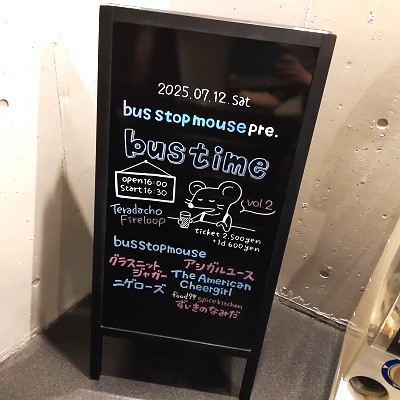 2025.07.12.sat
bus stop mouse pre.
bus time
open 16:00
start 16:30
vol 2
Teradacho
Fireloop
ticket 2,500yen
+1d 600yen
busstopmouse
グラスニット
ジャガー
アシガルユース
The American
Cheergirl
ニゲローズ
food spice kitchen
すいきのなみだ